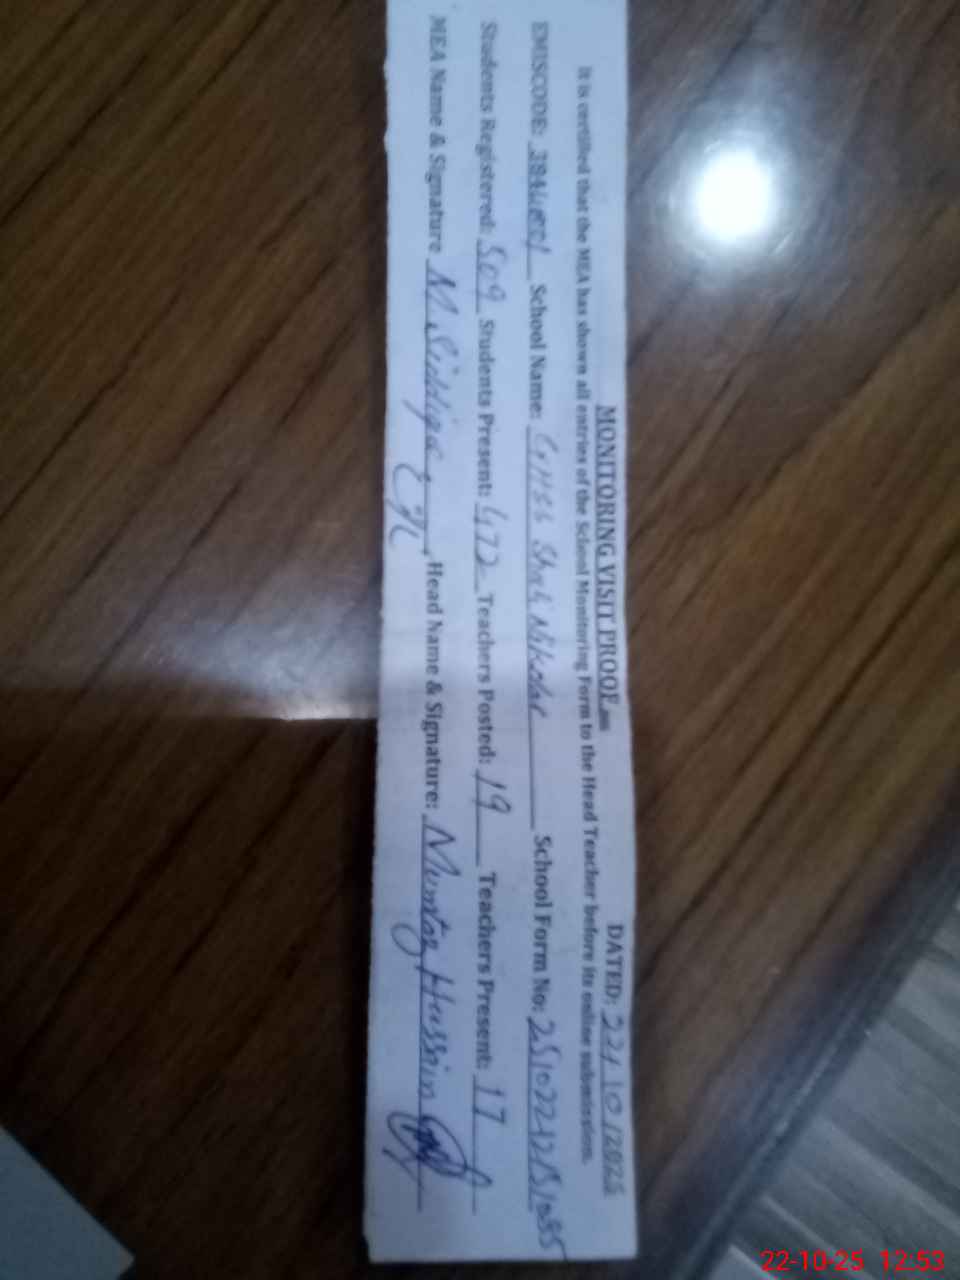 MONITORING VISIT PROOF DATED: 22/10/2025
It is certified that the MEA has shown all entries of the School Monitoring Form to the Head Teacher before its online submission.
EMISCODE: School Name: School Form No:
Students Registered: 509 Students Present: 472 Teachers Posted: 19 Teachers Present: 17
MEA Name & Signature M. Siddique, Head Name & Signature: Mumtaz Hussain
22-10-25 12:53